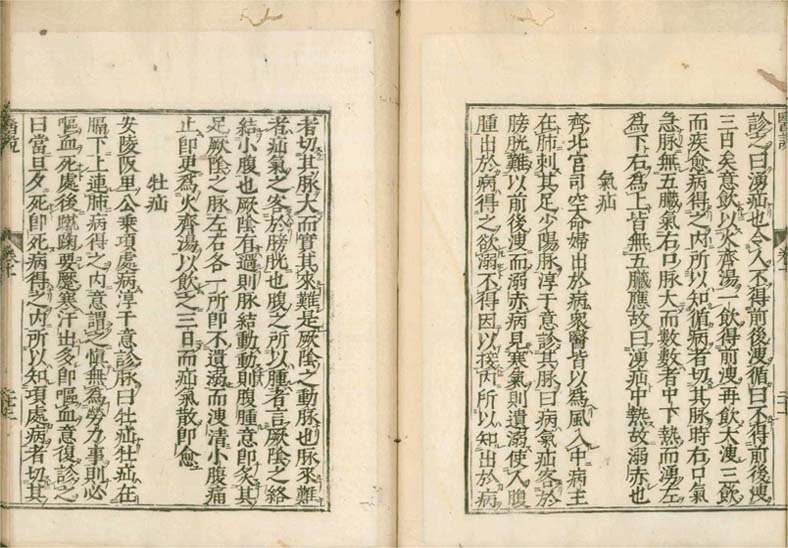 診之曰湧疝也令人不得前後溲循曰不得前後溲
三日矣意飲以火齊湯一飲得前溲再飲大溲三飲
而疾愈病得之內所以知循病者切其脉時右口氣
急脉無五臟氣右口脉大而數數者中下熱而湧左
為下右為上皆無五臟應故曰湧疝中熱故溺赤也
氣疝
齊北宮司空命婦出於病衆醫皆以為風入中病主
在肺刺其足少陽脉淳于意診其脉曰病氣疝客於
膀胱難以前後溲而溺赤病見寒氣則遺溺使人腹
腫出於病得之欲溺不得因以接內所以知出於病
者切其脉大而實其來難是厥陰之動脉也脉來難
者疝氣之客於膀胱也腹之所以腫者言厥陰之絡
結小腹也厥陰有過則脉結動動則腹腫意即灸其
足厥陰之脉左右各一所即不遺溺而溲清小腹痛
止即更為火齊湯以飲之三日而疝氣散即愈
牡疝
安陵阪里公乘項處病淳于意診脉曰牡疝牡疝在
膈下上連肺病得之內意謂之慎無為勞力事則必
嘔血死處後蹴踘要蹷寒汗出多即嘔血意復診之
曰當旦夕死即死病得之內所以知項處病者切其